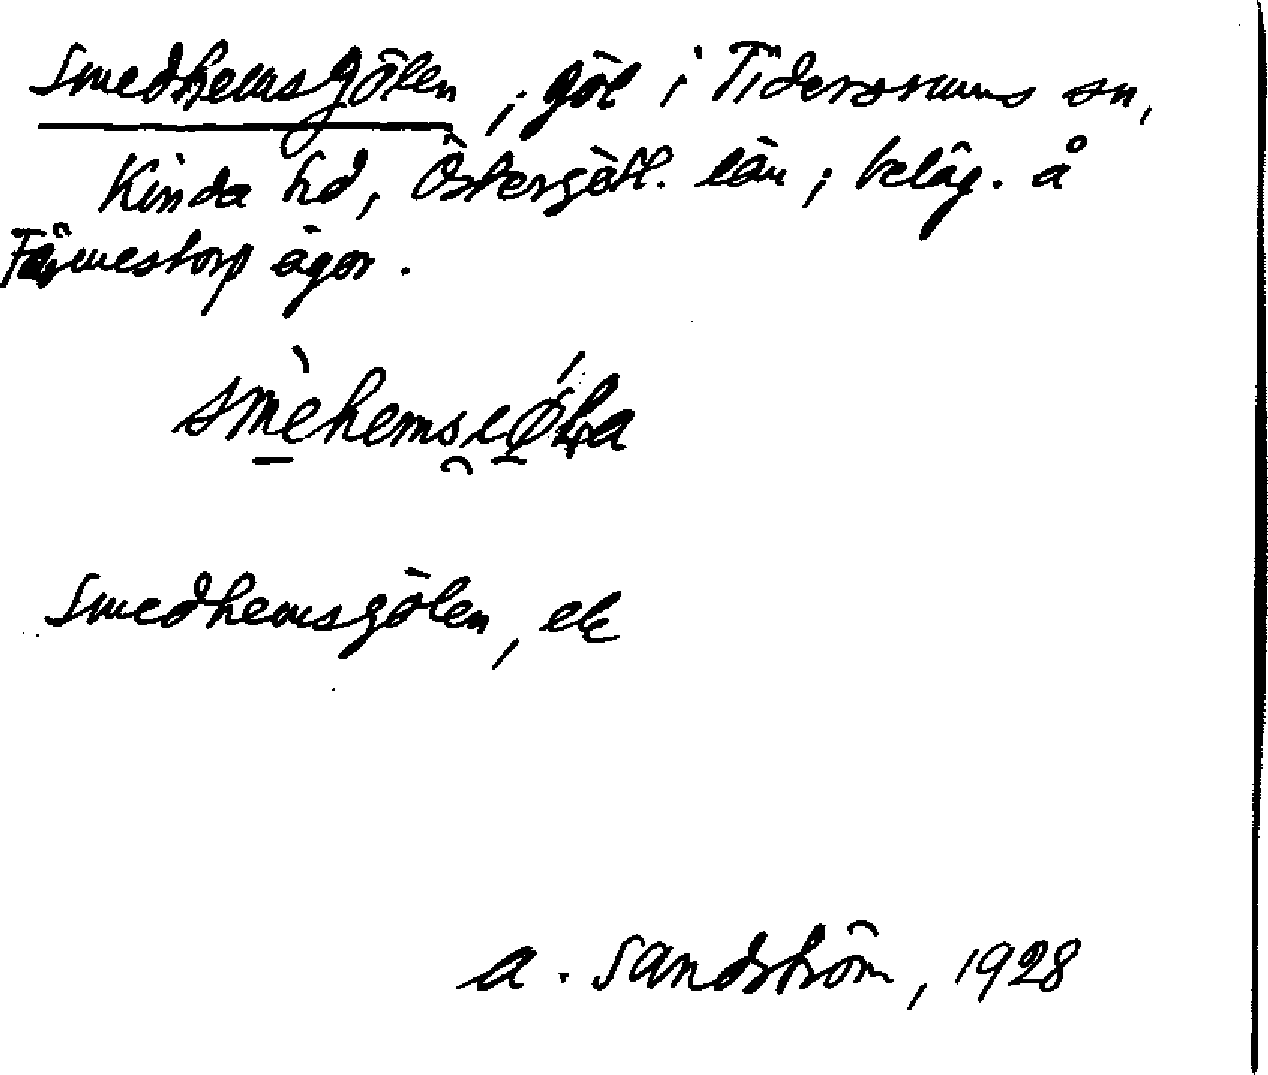 Smedhemsgölen, göl i Tidersrums sn,
Kinda hd, Östergötl. län; beläg. å
Fämmestorp ägor.
Smedhemsgölen, ek
A. Sandström, 1928